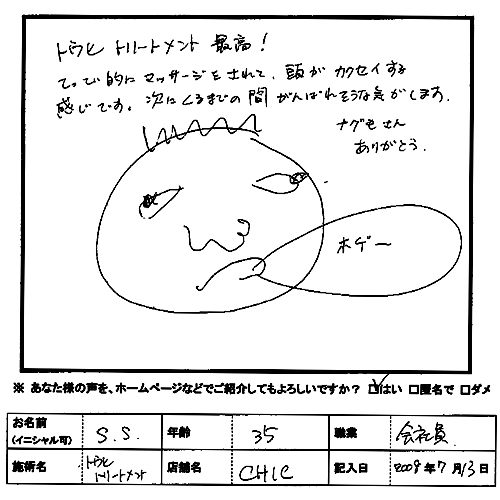 トウヒ トリートメント 最高！
てってい的に マッサージをされて、頭が カクセイする
感じです。次にくるまでの間 がんばれそうな気がします。
ナグモさん
ありがとう．
ホゲー
※ あなた様の声を、ホームページなどでご紹介してもよろしいですか？ ☑はい □匿名で □ダメ
お名前
(イニシャル可) S.S. 年齢 35 職業 会社員
施術名 トウヒ トリートメント 店舗名 CHIC 記入日 2009年7月13日